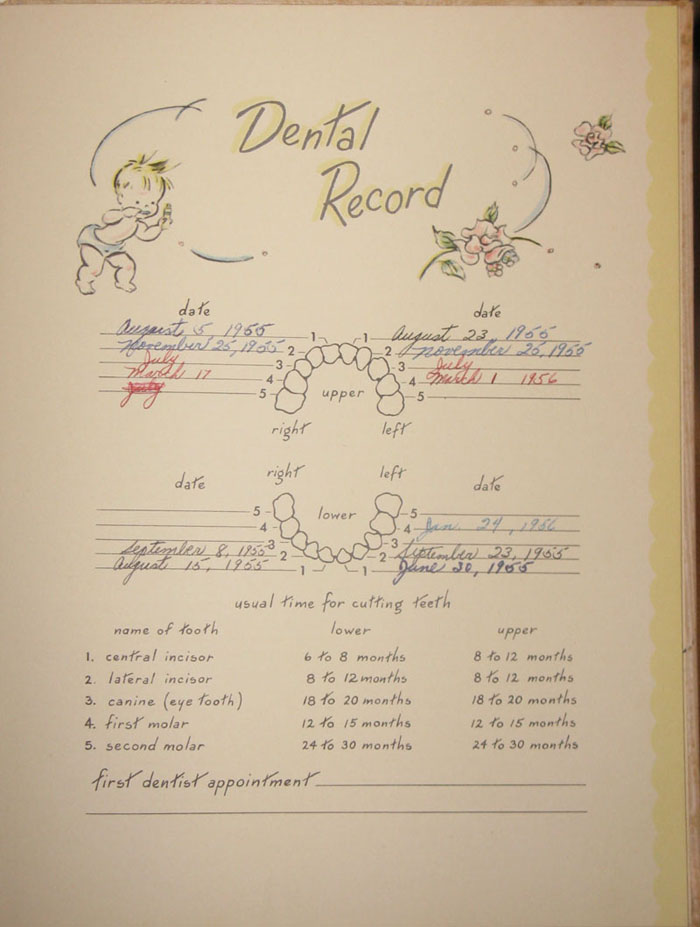 Dental
Record
date date
August 5, 1955 1 1 August 23 1955
November 25, 1955 2 2 November 25, 1955
July 3 3 July
March 17 4 4 March 1 1956
July 5 5
upper
right left
right left
date date
5 lower 5
4 4 Jan. 24, 1956
September 8, 1955 3 3 September 23, 1955
August 15, 1955 2 2 June 30, 1955
1 1
usual time for cutting teeth
name of tooth lower upper
1. central incisor 6 to 8 months 8 to 12 months
2. lateral incisor 8 to 12 months 8 to 12 months
3. canine (eye tooth) 18 to 20 months 18 to 20 months
4. first molar 12 to 15 months 12 to 15 months
5. second molar 24 to 30 months 24 to 30 months
first dentist appointment